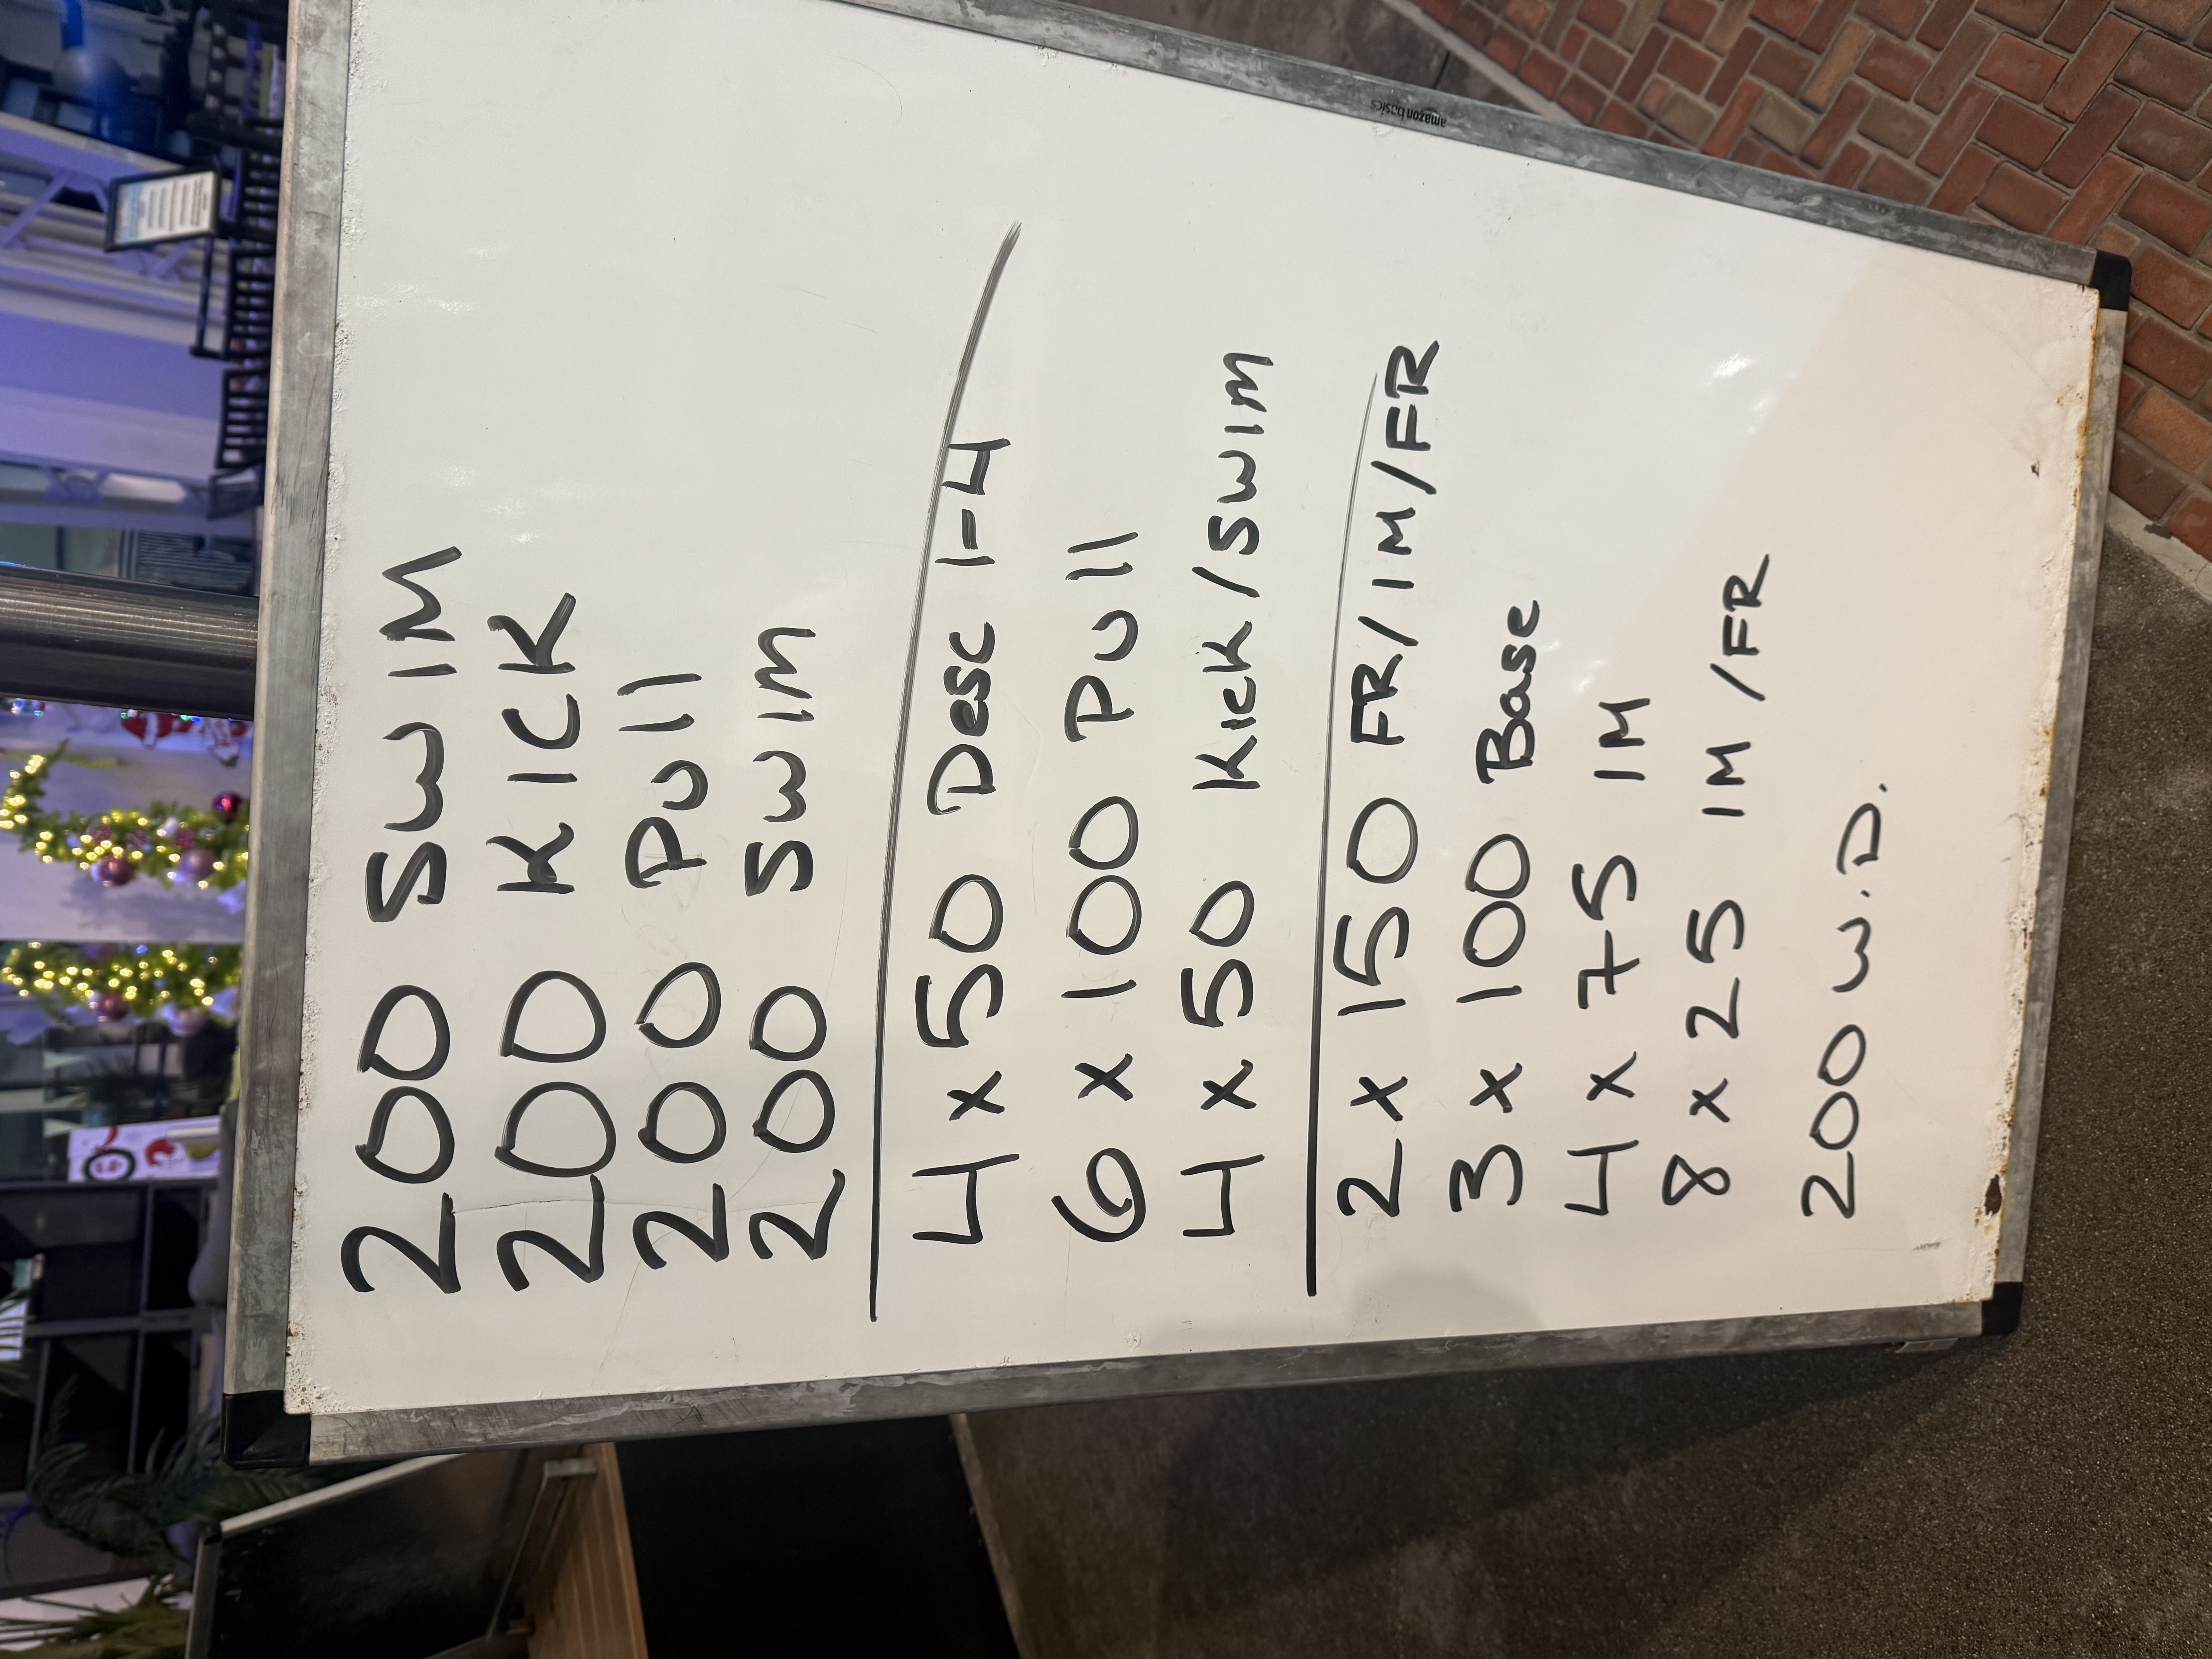 200 SWIM
200 KICK
200 Pull
200 SWIM
4 x 50 Desc 1-4
6 x 100 Pull
4 x 50 Kick/SWIM
2 x 150 FR/IM/FR
3 x 100 Base
4 x 75 IM
8 x 25 IM/FR
200 W.D.
amazonbasics